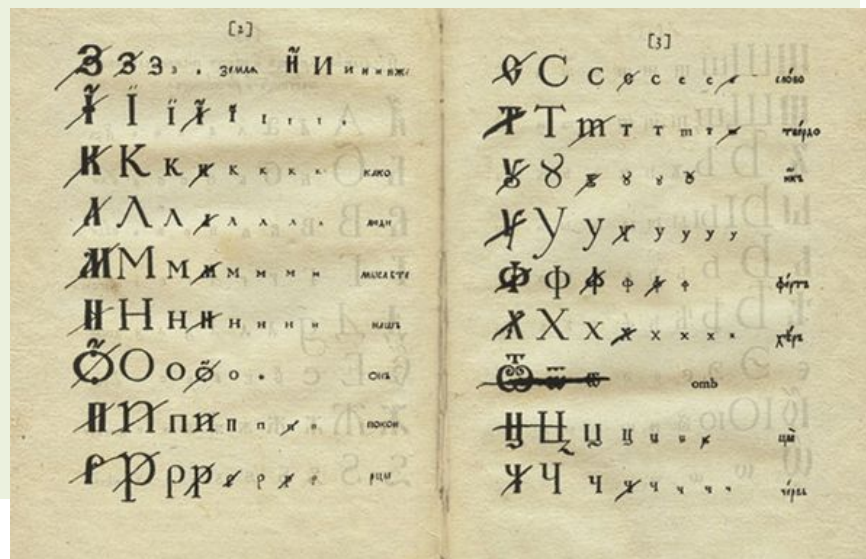 [2]
З З З з з земля Й И и и и иже
Ї Ї ї ї ї ї ї ї ї
К К к к к к к к како
Л Л л л л л л л люди
М М м м м м м м мыслѣте
Н Н н н н н н н нашъ
О О о о о о онъ
П П п п п п п п покои
Р Р р р р р р р рцы
[3]
С С с с с с с с слово
Т Т т т т т т т твердо
Ꙋ Ꙋ ꙋ ꙋ ꙋ ꙋ
У У у у у у у у
Ф ф ф ф ф ф фертъ
Х Х х х х х х х хѣръ
Ѿ ѿ ѿ отъ
Ц Ц ц ц ц ц ц ц цы
Ч Ч ч ч ч ч ч ч червь